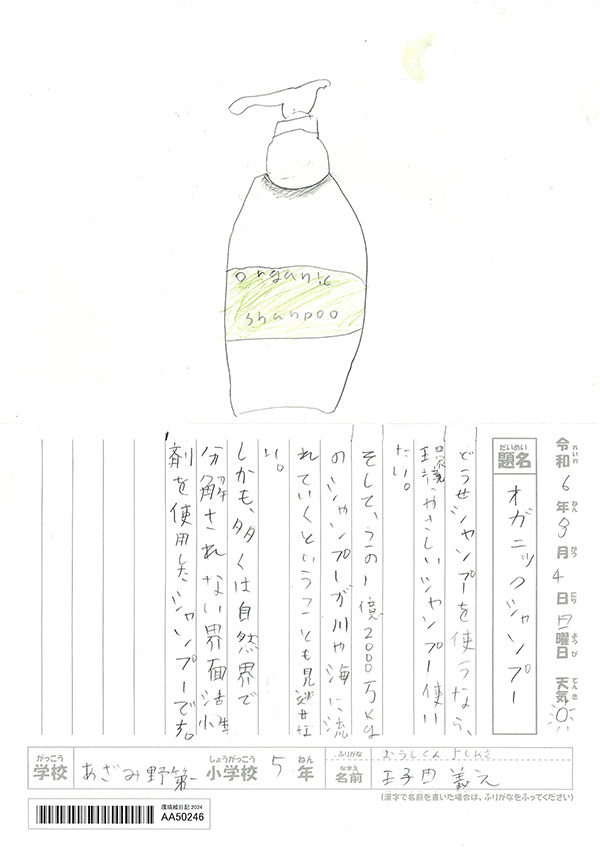 organic
shanpoo
令和6年8月4日日曜日 天気
れいわ ねん がつ にち ようび てんき
だいめい
題名
オガニックシャンプー
どうせシャンプーを使うなら、
環境やさしいシャンプー使い
たい。
そして、うの1億2000万kg
のシャンプーが川や海に流
れていくということも見逃せな
い。
しかも、多くは自然界で
分解されない界面活性
剤を使用したシャンプーです。
がっこう
学校
あざみ野第一
しょうがっこう
小学校
5
ねん
年
ふりがな
なまえ
名前
(漢字で名前を書いた場合は、ふりがなをふってください)
環境絵日記2024
AA50246